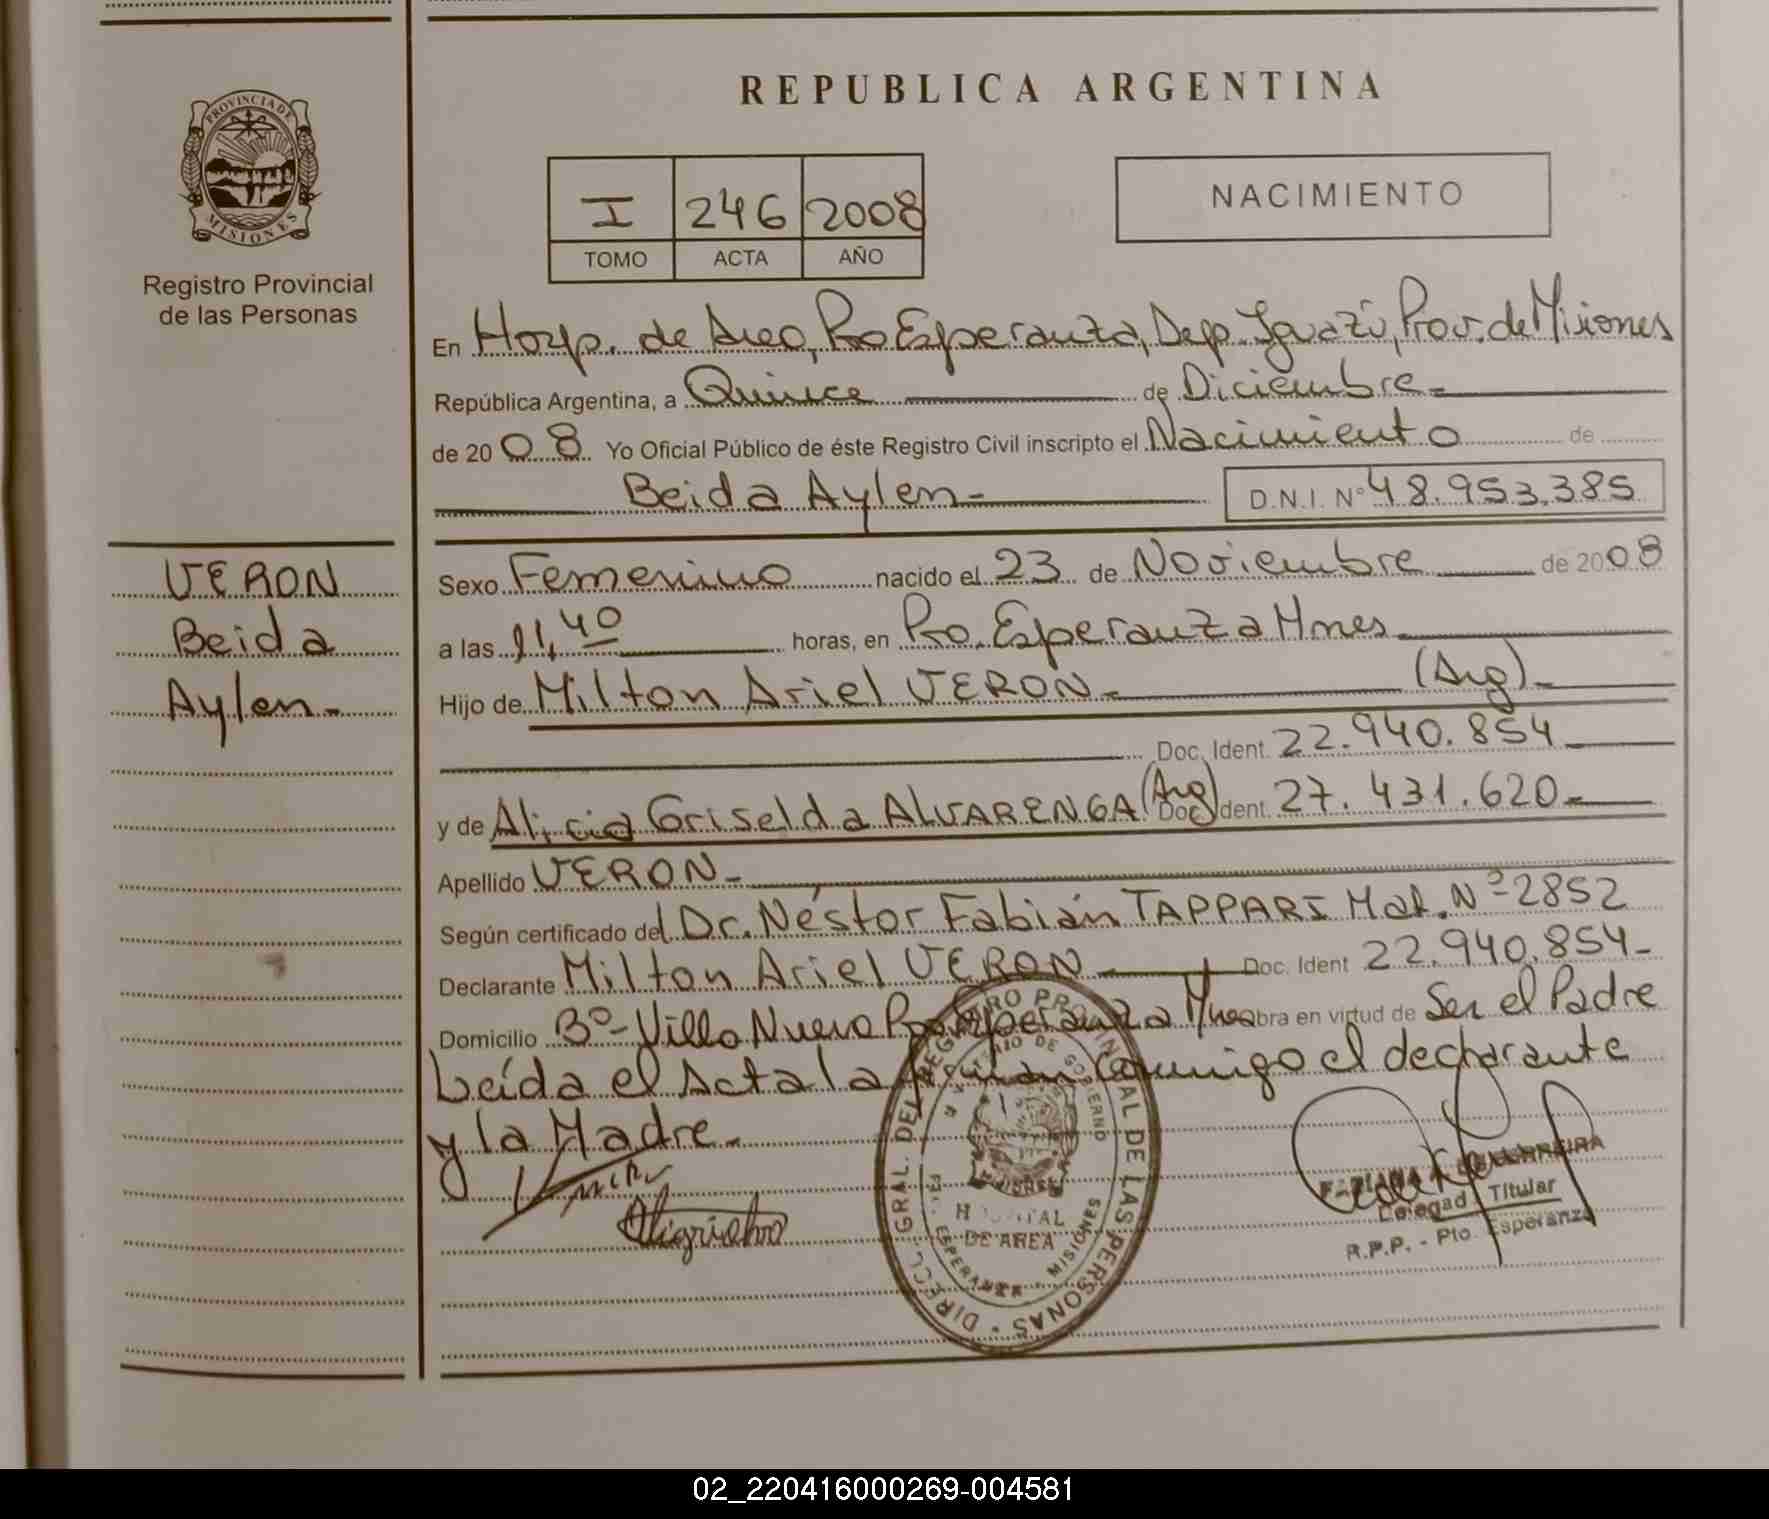 REPUBLICA ARGENTINA
PROVINCIA DE MISIONES
Registro Provincial
de las Personas
I 246 2008
TOMO ACTA AÑO
NACIMIENTO
En Hosp. de Area, Pto Esperanza, Dep. Iguazú, Prov. de Misiones
República Argentina, a Quince de Diciembre
de 2008 Yo Oficial Público de éste Registro Civil inscripto el Nacimiento de
Beida Aylen D.N.I. Nº 48.953.385
VERON
Beida
Aylen
Sexo Femenino nacido el 23 de Noviembre de 2008
a las 11,40 horas, en Pto. Esperanza Mnes
Hijo de Milton Ariel VERON (Arg)
Doc. Ident. 22.940.854
y de Alicia Griselda ALVARENGA (Arg) Doc. Ident. 27.431.620
Apellido VERON
Según certificado del Dr. Néstor Fabián TAPPARI Mat. Nº 2852
Declarante Milton Ariel VERON Doc. Ident 22.940.854
Domicilio Bº Villa Nueva Pto Esperanza Mnes obra en virtud de Ser el Padre
Leída el Acta la firman conmigo el declarante
y la Madre
DIRECC. GRAL. DEL REGISTRO PROVINCIAL DE LAS PERSONAS
MINISTERIO DE GOBIERNO
HOSPITAL
DE AREA
ESPERANZA - MISIONES
Titular
R.P.P. - Pto. Esperanza
02_220416000269-004581